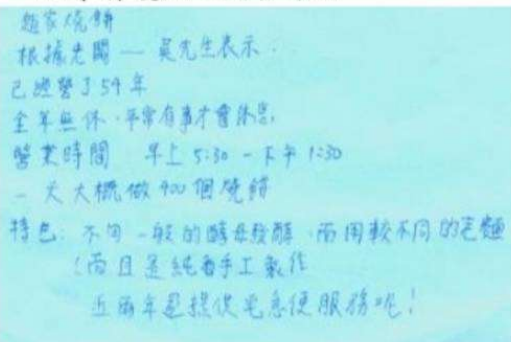 趙家燒餅
根據老闆 — 吳先生表示.
已經營了54年
全年無休,平常有事才會休息,
營業時間 早上 5:30 - 下午 1:30
一天大概做 400 個燒餅
特色: 不同一般的酵母發酵,而用較不同的老麵
(而且是純看手工製作
近兩年還提供宅急便服務呢!